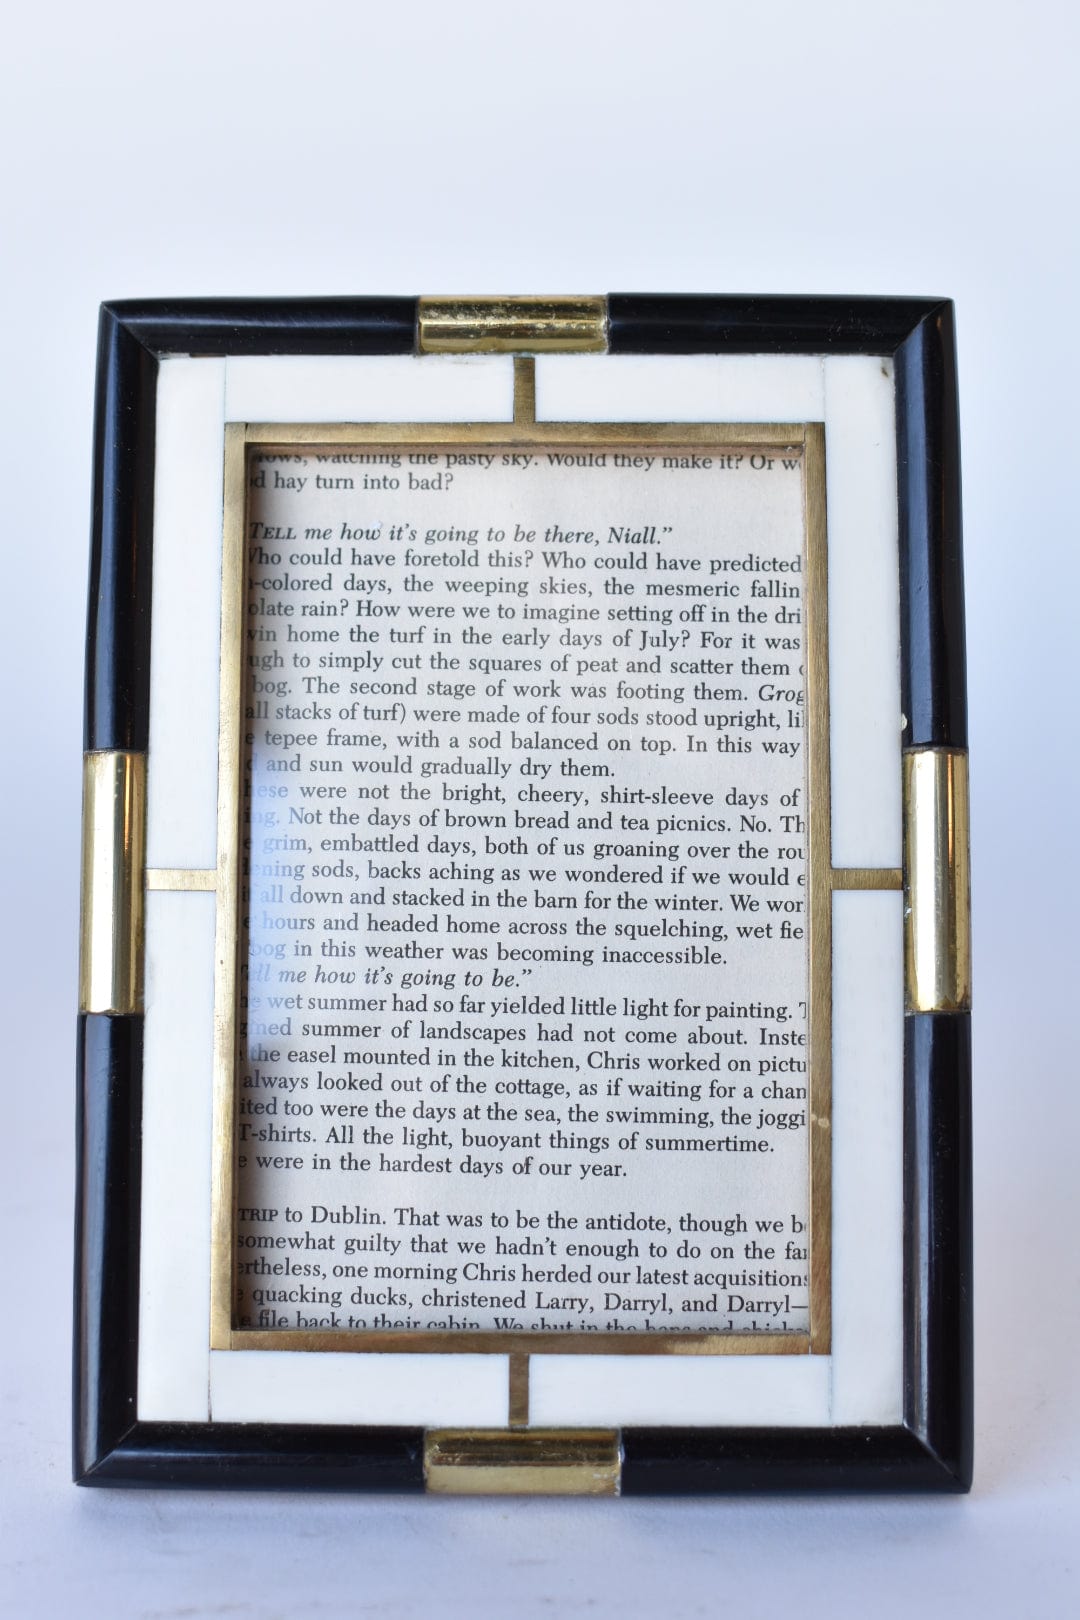 watching the pasty sky. Would they make it? Or
hay turn into bad?
TELL me how it's going to be there, Niall."
could have foretold this? Who could have predicted
-colored days, the weeping skies, the mesmeric
rain? How were we to imagine setting off in the
home the turf in the early days of July? For it was
to simply cut the squares of peat and scatter them
bog. The second stage of work was footing them.
stacks of turf) were made of four sods stood upright,
tepee frame, with a sod balanced on top. In this way
and sun would gradually dry them.
were not the bright, cheery, shirt-sleeve days of
Not the days of brown bread and tea picnics. No.
grim, embattled days, both of us groaning over the
sods, backs aching as we wondered if we would
all down and stacked in the barn for the winter. We
hours and headed home across the squelching, wet
bog in this weather was becoming inaccessible.
me how it's going to be."
wet summer had so far yielded little light for painting.
summer of landscapes had not come about.
the easel mounted in the kitchen, Chris worked on
always looked out of the cottage, as if waiting for a
too were the days at the sea, the swimming, the
T-shirts. All the light, buoyant things of summertime.
were in the hardest days of our year.
TRIP to Dublin. That was to be the antidote, though we
somewhat guilty that we hadn't enough to do on the
one morning Chris herded our latest
quacking ducks, christened Larry, Darryl, and Darryl—
file back to their cabin. We shut in the hens and